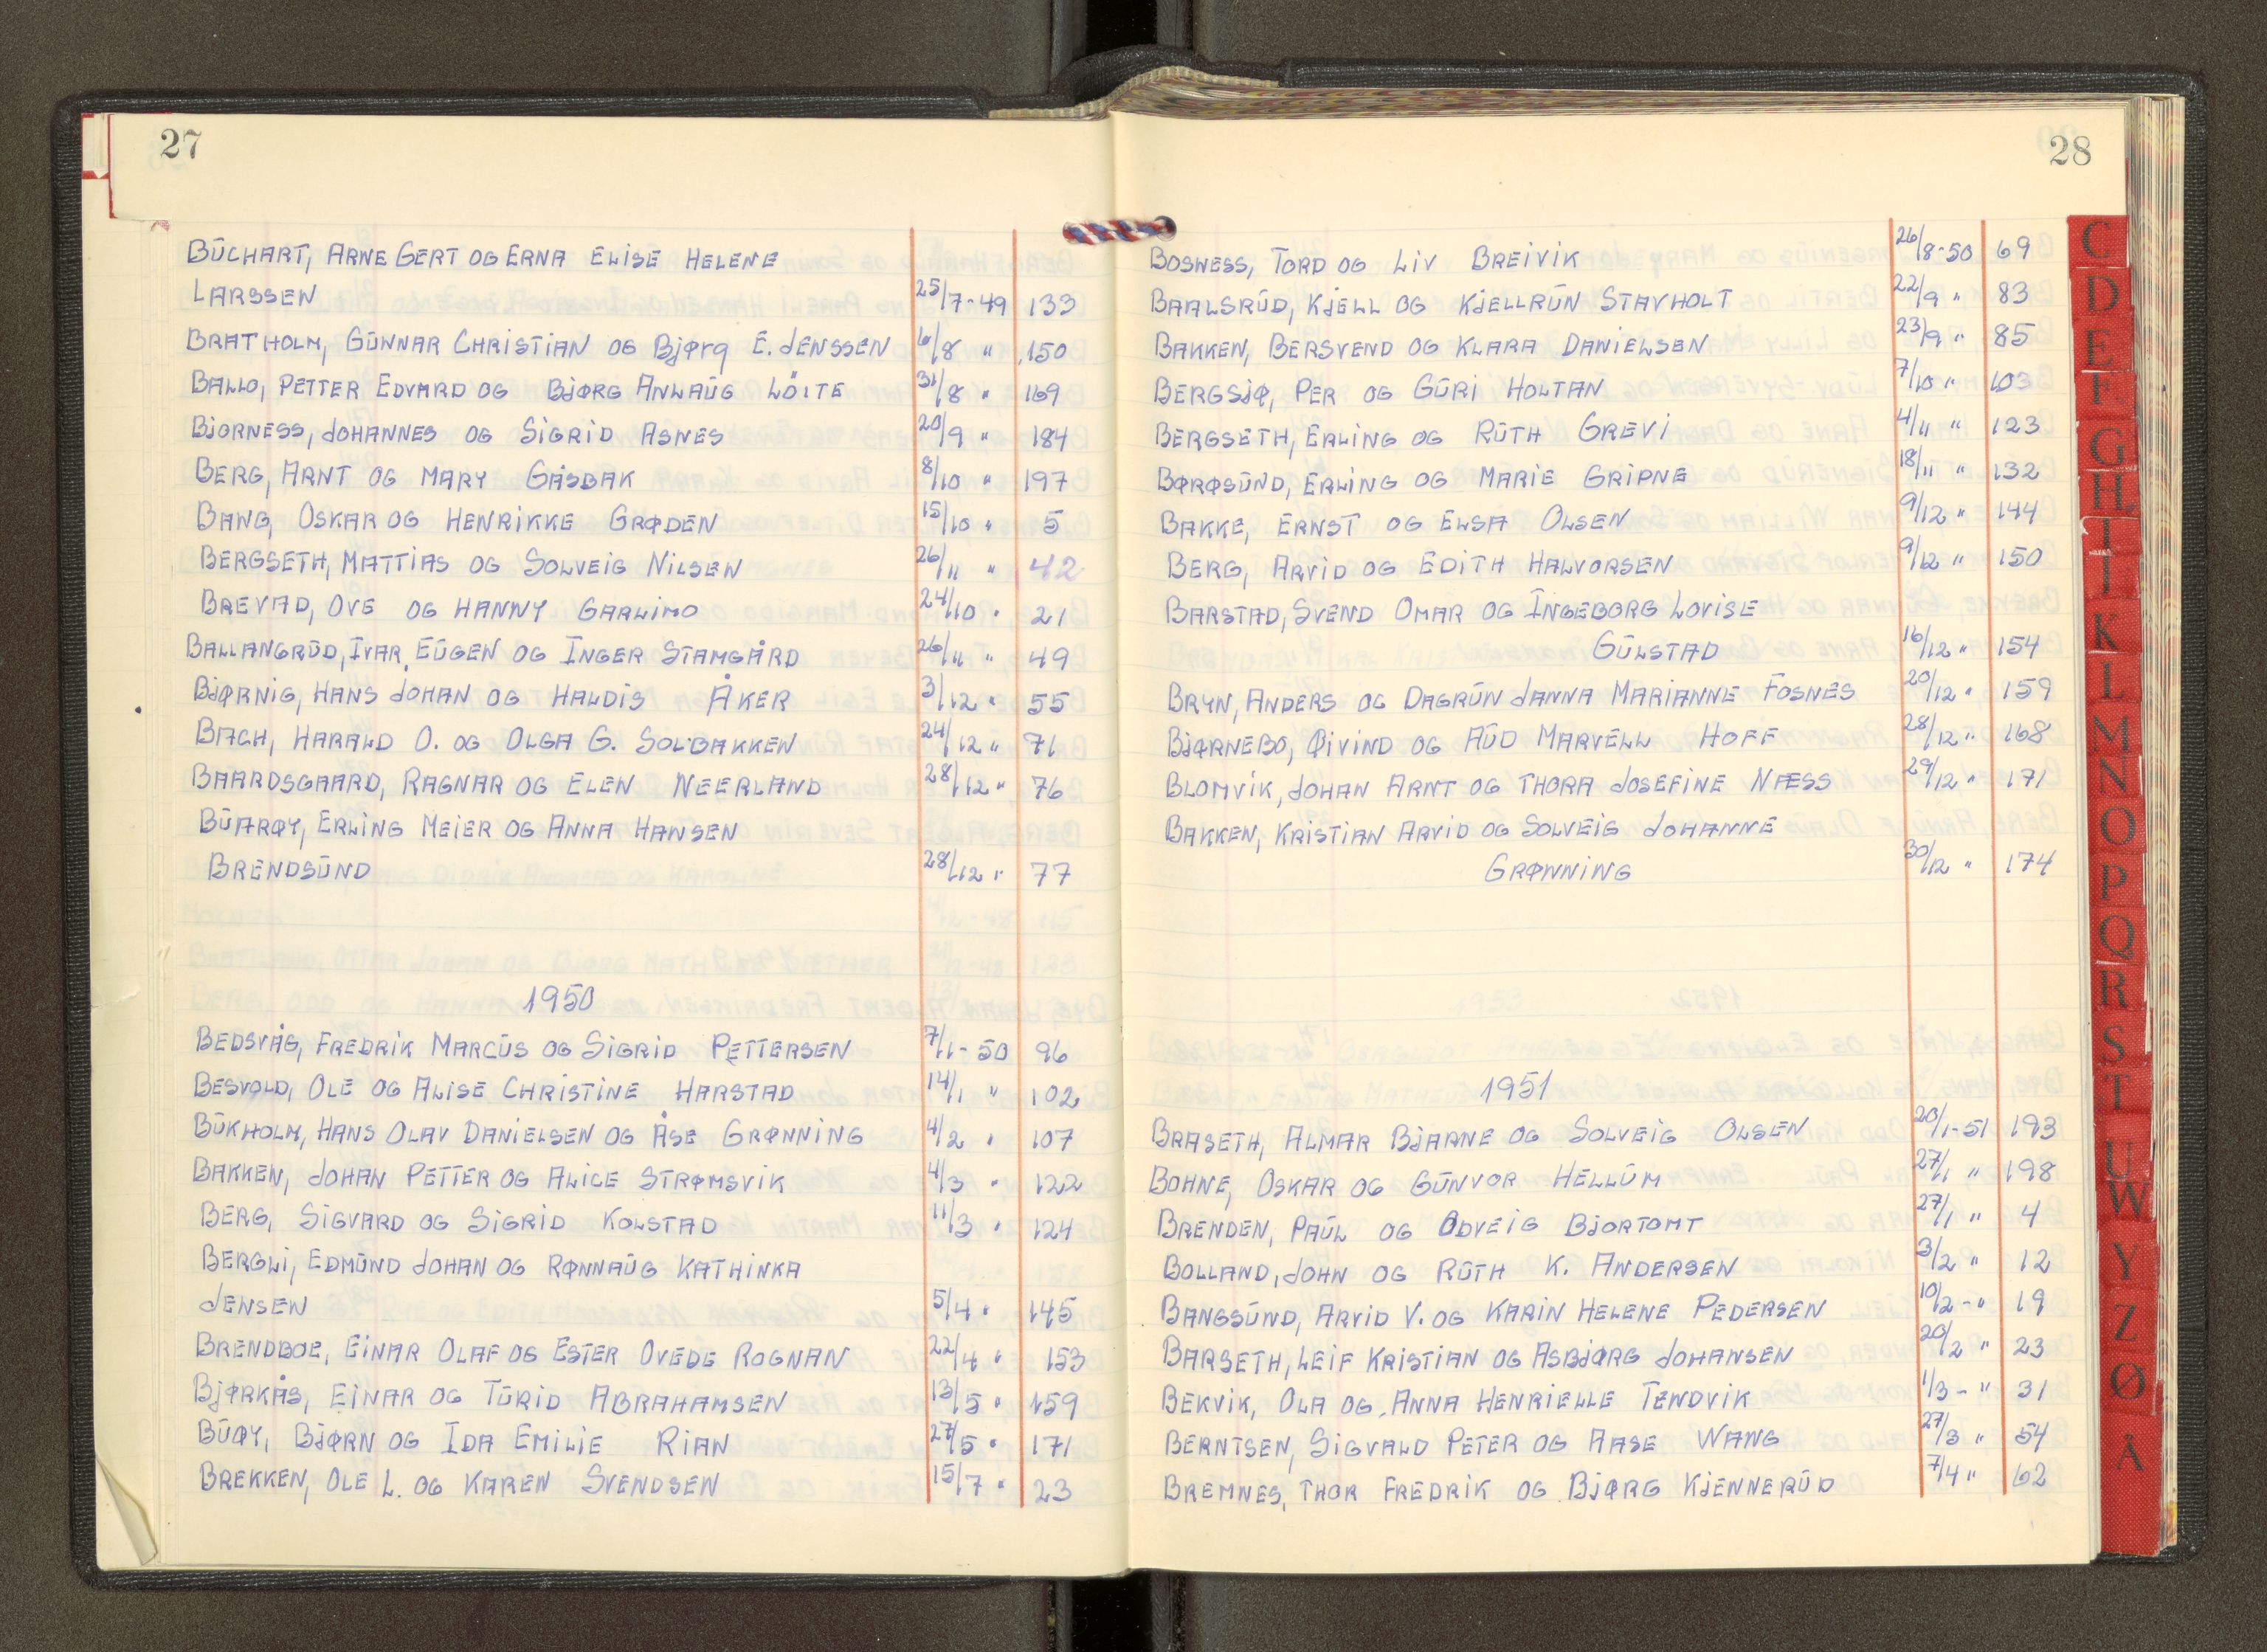 27
BŪCHART, ARNE GERT OG ERNA ELISE HELENE
LARSSEN 25/7-49 133
BRATHOLM, GŪNNAR CHRISTIAN OG BJØRG E. JENSSEN 6/8 " 150
BALLO, PETTER EDVARD OG BJØRG ANLAŪG LÖITE 31/8 " 169
BJORNESS, JOHANNES OG SIGRID ASNES 20/9 " 184
BERG, ARNT OG MARY GÅSBAK 8/10 " 197
BANG, OSKAR OG HENRIKKE GRØDEN 15/10 " 5
BERGSETH, MATTIAS OG SOLVEIG NILSEN 26/11 " 42
BREVAD, OVE OG HANNY GARLIMO 24/10 " 21
BALLANGRŪD, IVAR EŪGEN OG INGER STAMGÅRD 26/11 " 49
BJØRNIG, HANS JOHAN OG HALDIS ÅKER 3/12 " 55
BACH, HARALD O. OG OLGA G. SOLBAKKEN 24/12 " 71
BAARDSGAARD, RAGNAR OG ELEN NEERLAND 28/12 " 76
BŪARØY, ERLING MEIER OG ANNA HANSEN
BRENDSŪND 28/12 " 77
1950
BEDSVÅG, FREDRIK MARCŪS OG SIGRID PETTERSEN 7/1-50 96
BESVOLD, OLE OG ALISE CHRISTINE HARSTAD 14/1 " 102
BŪKHOLM, HANS OLAV DANIELSEN OG ÅSE GRØNNING 4/2 " 107
BAKKEN, JOHAN PETTER OG ALICE STRØMSVIK 4/3 " 122
BERG, SIGVARD OG SIGRID KOLSTAD 11/3 " 124
BERGLI, EDMŪND JOHAN OG RØNNAŪG KATHINKA
JENSEN 5/4 " 145
BRENDBOE, EINAR OLAF OG ESTER OVEDE ROGNAN 22/4 " 153
BJØRKÅS, EINAR OG TŪRID ABRAHAMSEN 13/5 " 159
BŪØY, BJØRN OG IDA EMILIE RIAN 27/5 " 171
BREKKEN, OLE L. OG KAREN SVENDSEN 15/7 " 23
28
BOSNESS, TORD OG LIV BREIVIK 26/8-50 69
BAALSRŪD, KJELL OG KJELLRŪN STAVHOLT 22/9 " 83
BAKKEN, BERSVEND OG KLARA DANIELSEN 23/9 " 85
BERGSJØ, PER OG GŪRI HOLTAN 7/10 " 103
BERGSETH, ERLING OG RŪTH GREVI 4/11 " 123
BØRØSŪND, ERLING OG MARIE GRIPNE 18/11 " 132
BAKKE, ERNST OG ELSA OLSEN 9/12 " 144
BERG, ARVID OG EDITH HALVORSEN 9/12 " 150
BARSTAD, SVEND OMAR OG INGEBORG LOVISE
GŪLSTAD 16/12 " 154
BRYN, ANDERS OG DAGRŪN JANNA MARIANNE FOSNES 20/12 " 159
BJØRNEBO, ØIVIND OG AŪD MARVELL HOFF 28/12 " 168
BLOMVIK, JOHAN ARNT OG THORA JOSEFINE NÆSS 29/12 " 171
BAKKEN, KRISTIAN ARVID OG SOLVEIG JOHANNE
GRØNNING 30/12 " 174
1951
BRASETH, ALMAR BJARNE OG SOLVEIG OLSEN 20/1-51 193
BOHNE, OSKAR OG GŪNVOR HELLŪM 27/1 " 198
BRENDEN, PAŪL OG ODVEIG BJORTOMT 27/1 " 4
BOLLAND, JOHN OG RŪTH K. ANDERSEN 3/2 " 12
BANGSŪND, ARVID V. OG KARIN HELENE PEDERSEN 10/2-" 19
BARSETH, LEIF KRISTIAN OG ASBJØRG JOHANSEN 20/2 " 23
BEKVIK, OLA OG ANNA HENRIELLE TENDVIK 1/3-" 31
BERNTSEN, SIGVALD PETER OG AASE WANG 27/3 " 54
BREMNES, THOR FREDRIK OG BJØRG KJENNERŪD 7/4 " 62
C
D
E
F
G
H
I
J
K
L
M
N
O
P
Q
R
S
T
U
W
Y
Z
Ø
Å